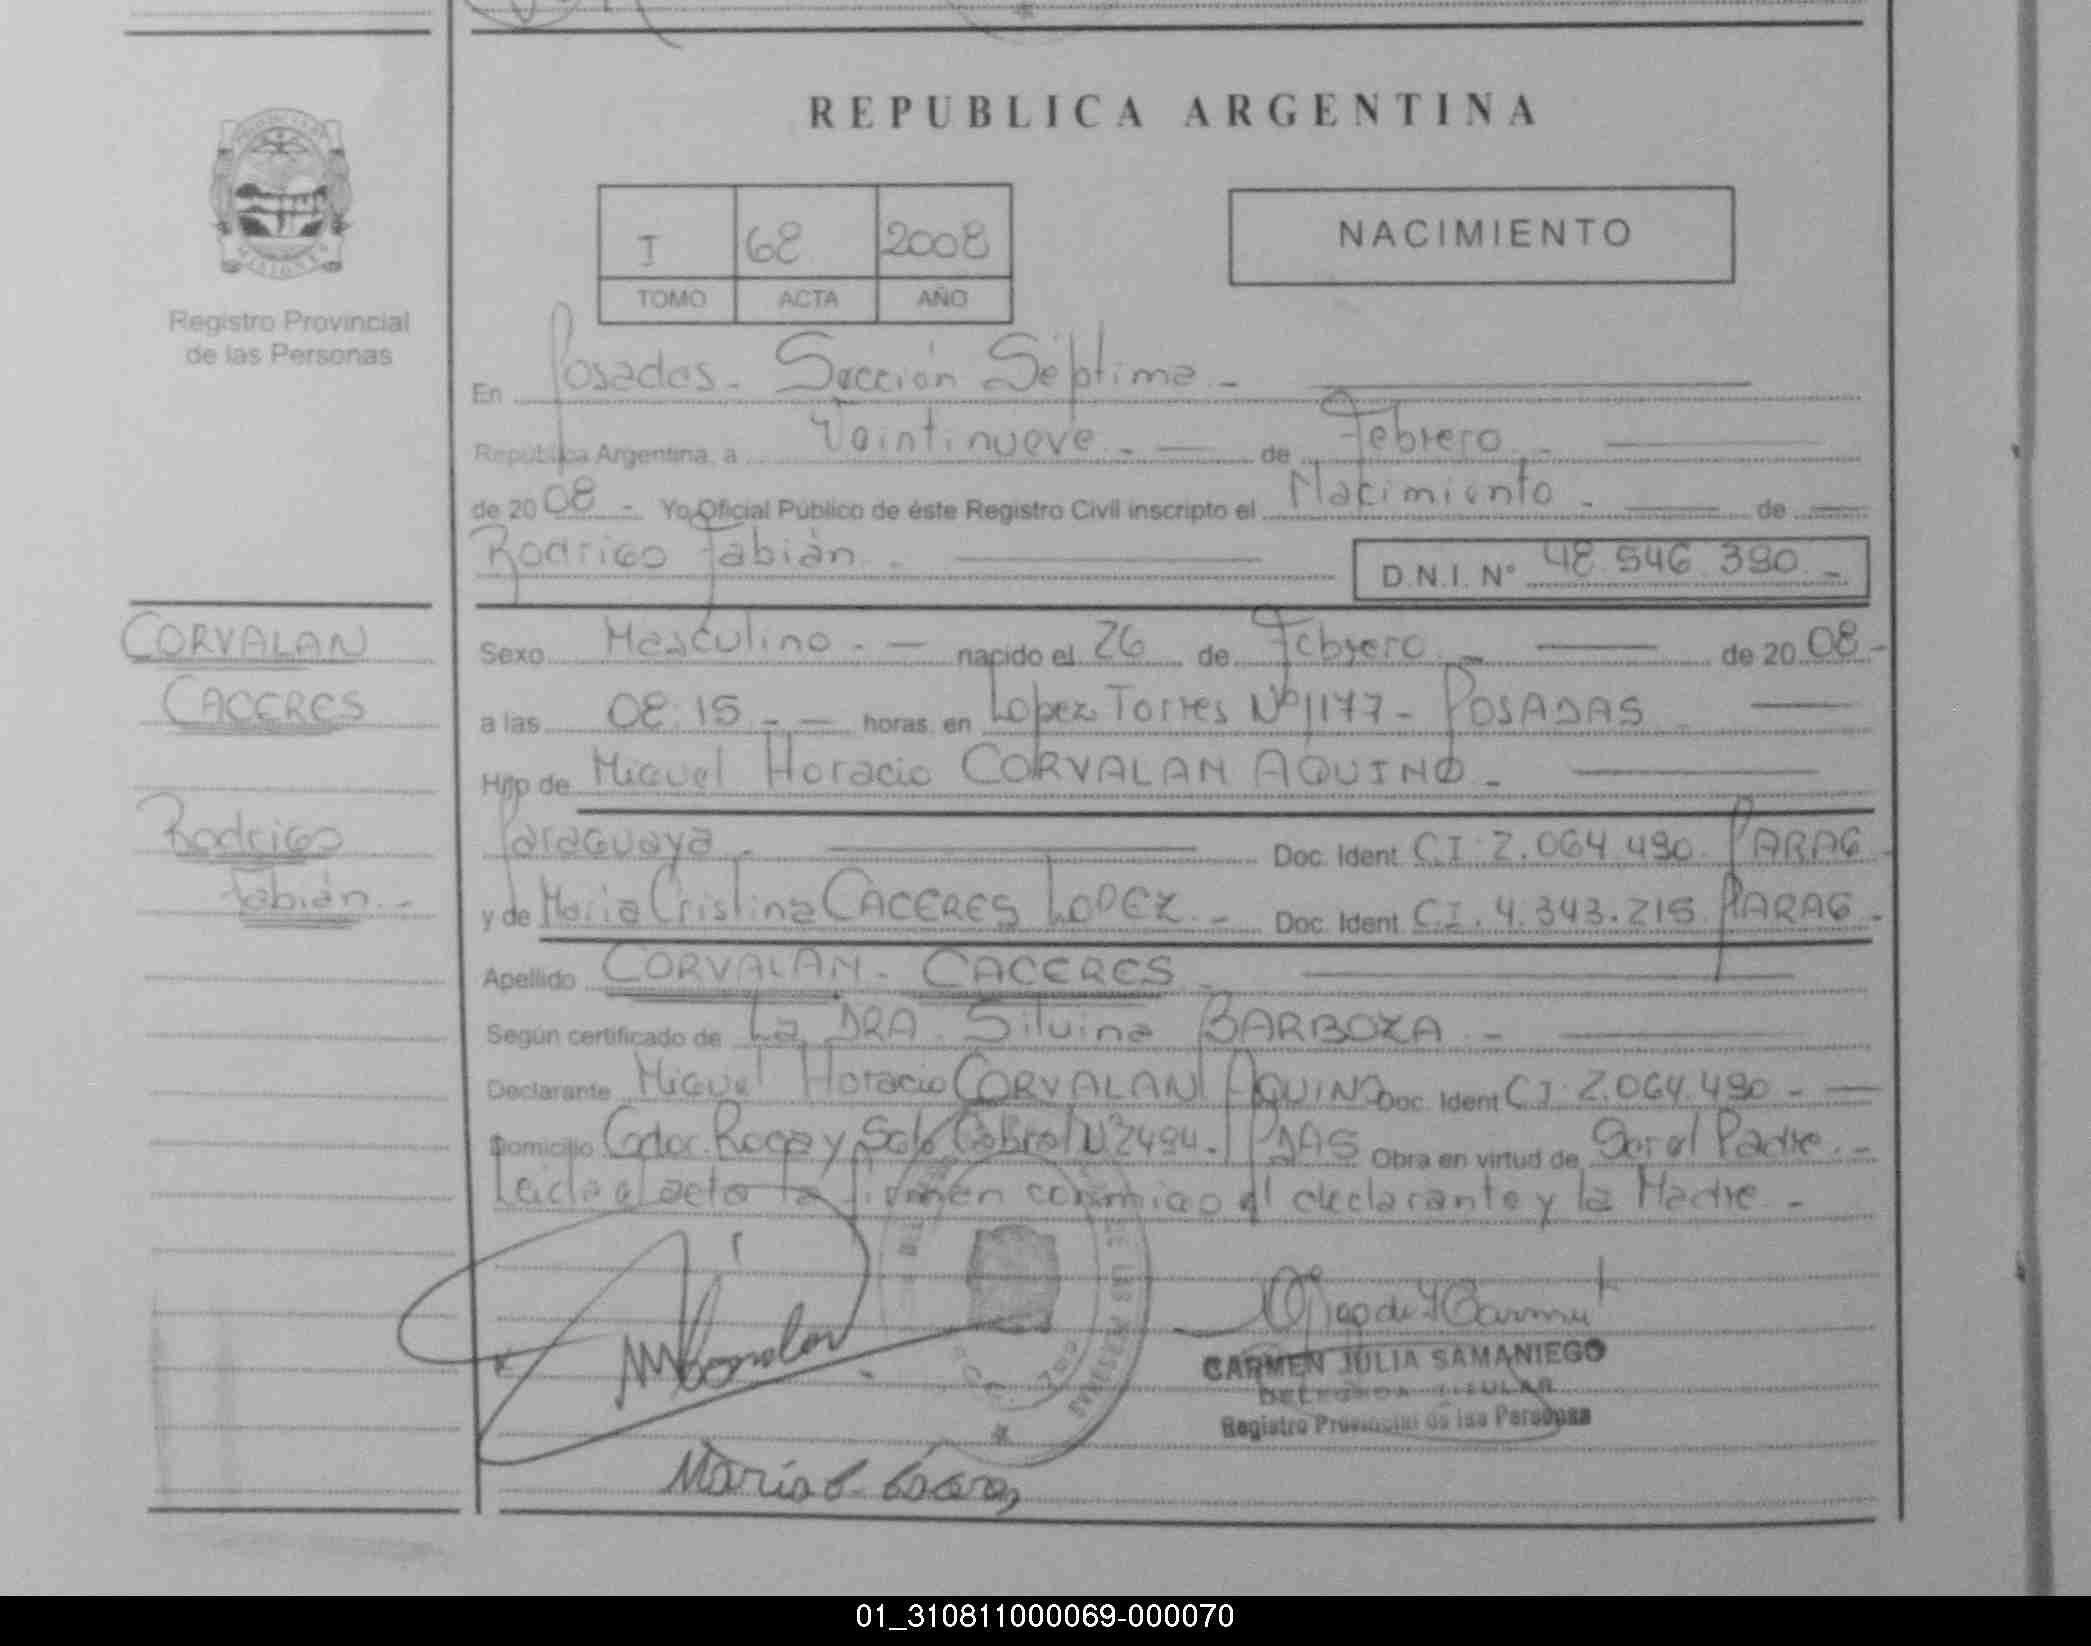 REPUBLICA ARGENTINA
I 68 2008
TOMO ACTA AÑO
NACIMIENTO
Registro Provincial
de las Personas
En Posadas. Sección Séptima. -
República Argentina, a Veintinueve. - de Febrero. -
de 20 08 - Yo Oficial Público de éste Registro Civil inscripto el Nacimiento - de
Rodrigo Fabián. D.N.I. Nº 48.546.390. -
CORVALAN
CACERES
Rodrigo
Fabián. -
Sexo Masculino. - nacido el 26 de Febrero. - de 20 08 -
a las 08:15 - horas, en Lopez Torres Nº 1177 - POSADAS
Hijo de Miguel Horacio CORVALAN AQUINO -
Paraguaya - Doc. Ident. C.I: 2.064.490. PARAG
y de Maria Cristina CACERES LOPEZ. - Doc. Ident. C.I. 4.343.215. PARAG -
Apellido CORVALAN - CACERES
Según certificado de La DRA. Silvina BARBOZA. -
Declarante Miguel Horacio CORVALAN AQUINO Doc. Ident C.I: 2.064.490 -
Domicilio Gdor. Roca y Sgto Cabral Nº 2494. PDAS Obra en virtud de Ser el Padre. -
Leida el acta la firman conmigo el declarante y la Madre -
CARMEN JULIA SAMANIEGO
DELEGADA TITULAR
Registro Provincial de las Personas
Maria C. Caceres
01_310811000069-000070